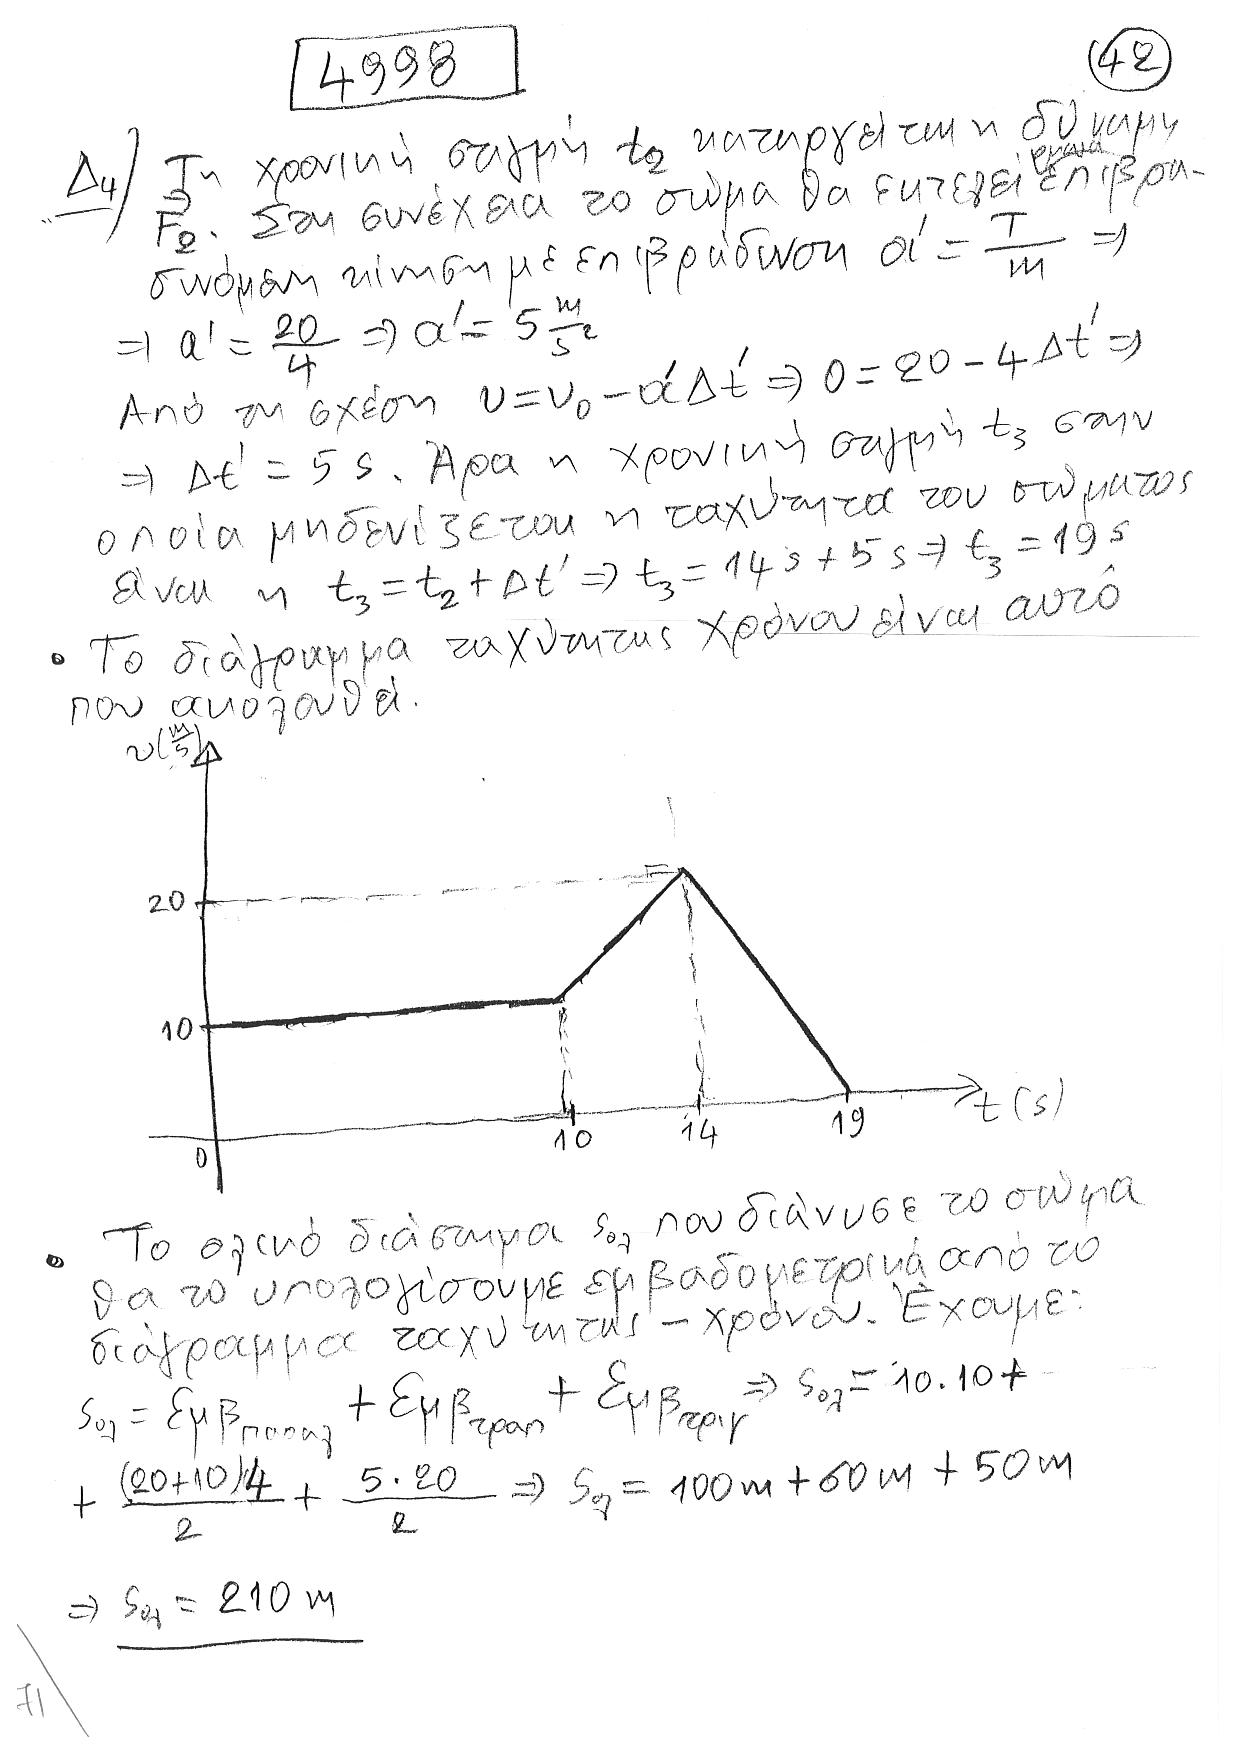 4998
42
Δ4) Τη χρονική στιγμή t2 καταργείται η δύναμη
F2. Στη συνέχεια το σώμα θα εκτελεί ομαλά επιβρα-
δυνόμενη κίνηση με επιβράδυνση α' = T/m ⇒
⇒ α' = 20/4 ⇒ α' = 5 m/s²
Από τη σχέση υ = υ0 - α'Δt' ⇒ 0 = 20 - 4Δt' ⇒
⇒ Δt' = 5 s. Άρα η χρονική στιγμή t3 στην
οποία μηδενίζεται η ταχύτητα του σώματος
είναι η t3 = t2 + Δt' ⇒ t3 = 14 s + 5 s ⇒ t3 = 19 s
• Το διάγραμμα ταχύτητας χρόνου είναι αυτό
που ακολουθεί.
υ(m/s)
20
10
0
10
14
19
t(s)
• Το ολικό διάστημα sολ που διάνυσε το σώμα
θα το υπολογίσουμε εμβαδομετρικά από το
διάγραμμα ταχύτητας - χρόνου. Έχουμε:
sολ = Εμβπαραλ + Εμβτραπ + Εμβτριγ ⇒ sολ = 10.10 +
+ (20+10)4/2 + 5·20/2 ⇒ sολ = 100m + 60m + 50m
⇒ sολ = 210 m
71